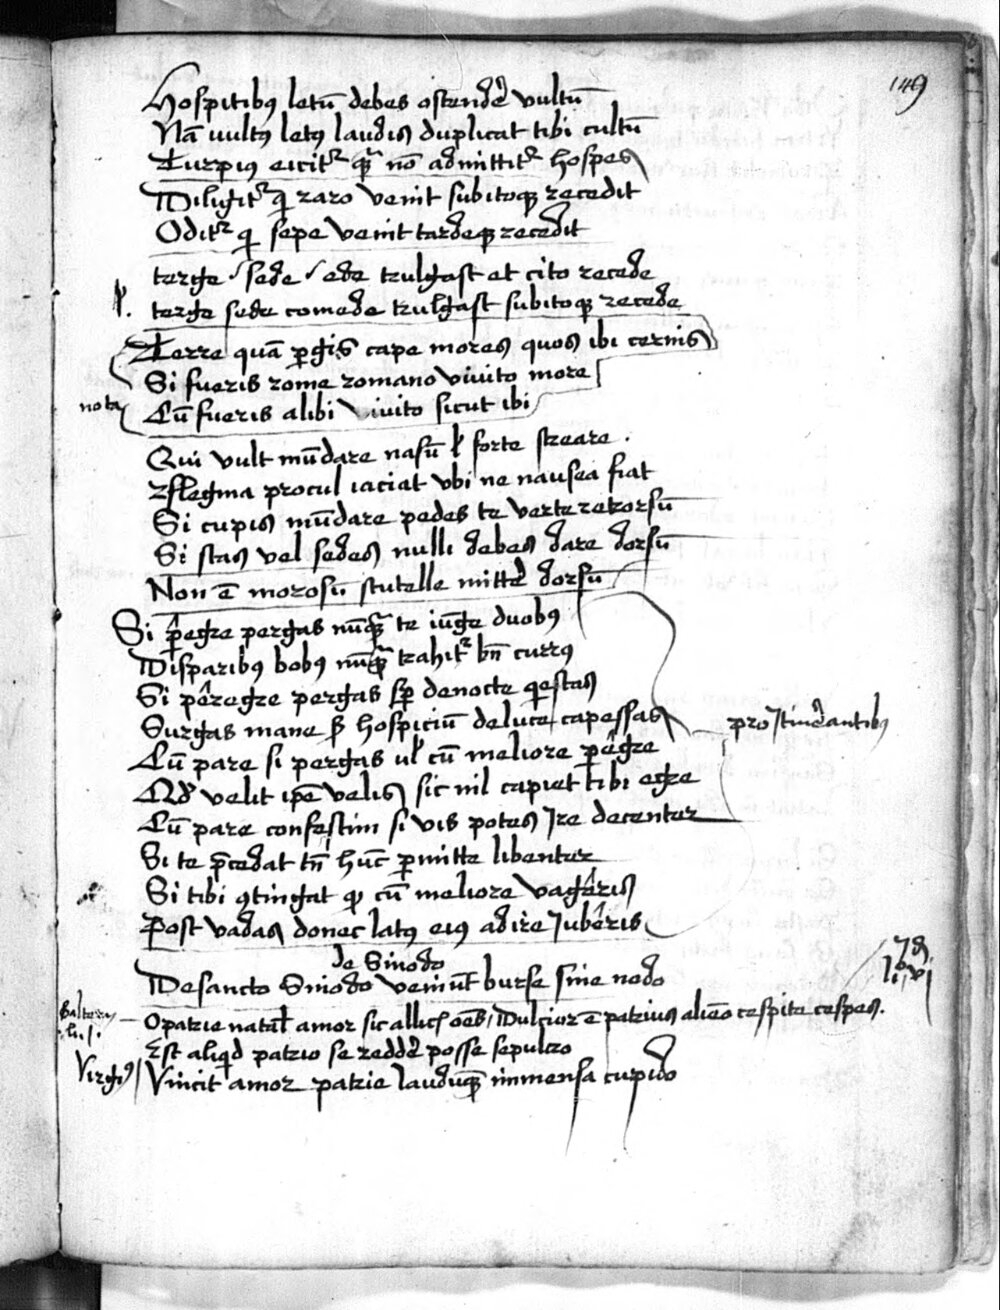 149
Hospitibꝰ letū debes ostendē vultū
Nā vultꝰ letꝰ laudis duplicat tibi cultū
Turpiꝰ eicitr qr nō admittitr hospes
Diligitr qi raro venit subitoqꝫ recedit
Oditr qi sepe venit tardeqꝫ recedit
terge / sede / ede trulgast et cito recede
terge sede comede trulgast subitoqꝫ recede
Terre quā pgis cape mores quos ibi cernis
Si fueris rome romano vivito more
nota Cū fueris alibi vivito sicut ibi
Qui vult mūdare nasū l forte screare
flegma procul iaciat ubi ne nausea fiat
Si cupis mūdare pedes te verte retrorsū
Si stas vel sedes nulli debes dare dorsū
Non ē morosū scutelle mittē dorsū
Si pegre pergas nūqꝫ te iūge duobꝰ
Disparibꝰ bobꝰ nūqꝫ trahitr bn̄ currꝰ
Si peregre pergas sp de nocte qiescas
Surgas mane hospiciū de luce capessas
pro Itinerantibꝰ
Cū pare si pergas ul cū meliore pegre
Qd velit ipe velis sic nil capiet tibi egre
Cū pare confestim si vis potes Ire decenter
Si te pcedat tn̄ hūc pmitte libenter
Si tibi ꝯtingat qi cū meliore vageris
Post vadas donec latꝰ eiꝰ adire Iuberis
de Sinodo
De sancto Sinodo veniūt burse sine nodo
O patrie natal amor sic allicis oēs / Dulcior ē patrius alieno cespite cespes.
Est aliqd patrio se reddē posse sepulcro
Virgiꝰ Vincit amor patrie laudūqꝫ immensa cupido